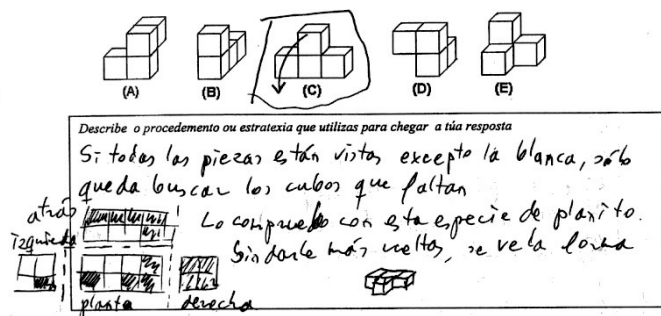 (A) (B) (C) (D) (E)
Describe o procedemento ou estratexia que utilizas para chegar a túa resposta
Si todas las piezas están vistas excepto la blanca, sólo
queda buscar los cubos que faltan
atrás
Lo compruebo con esta especie de planito.
izquierda
Sin darle más vueltas, se ve la forma
planta
derecha